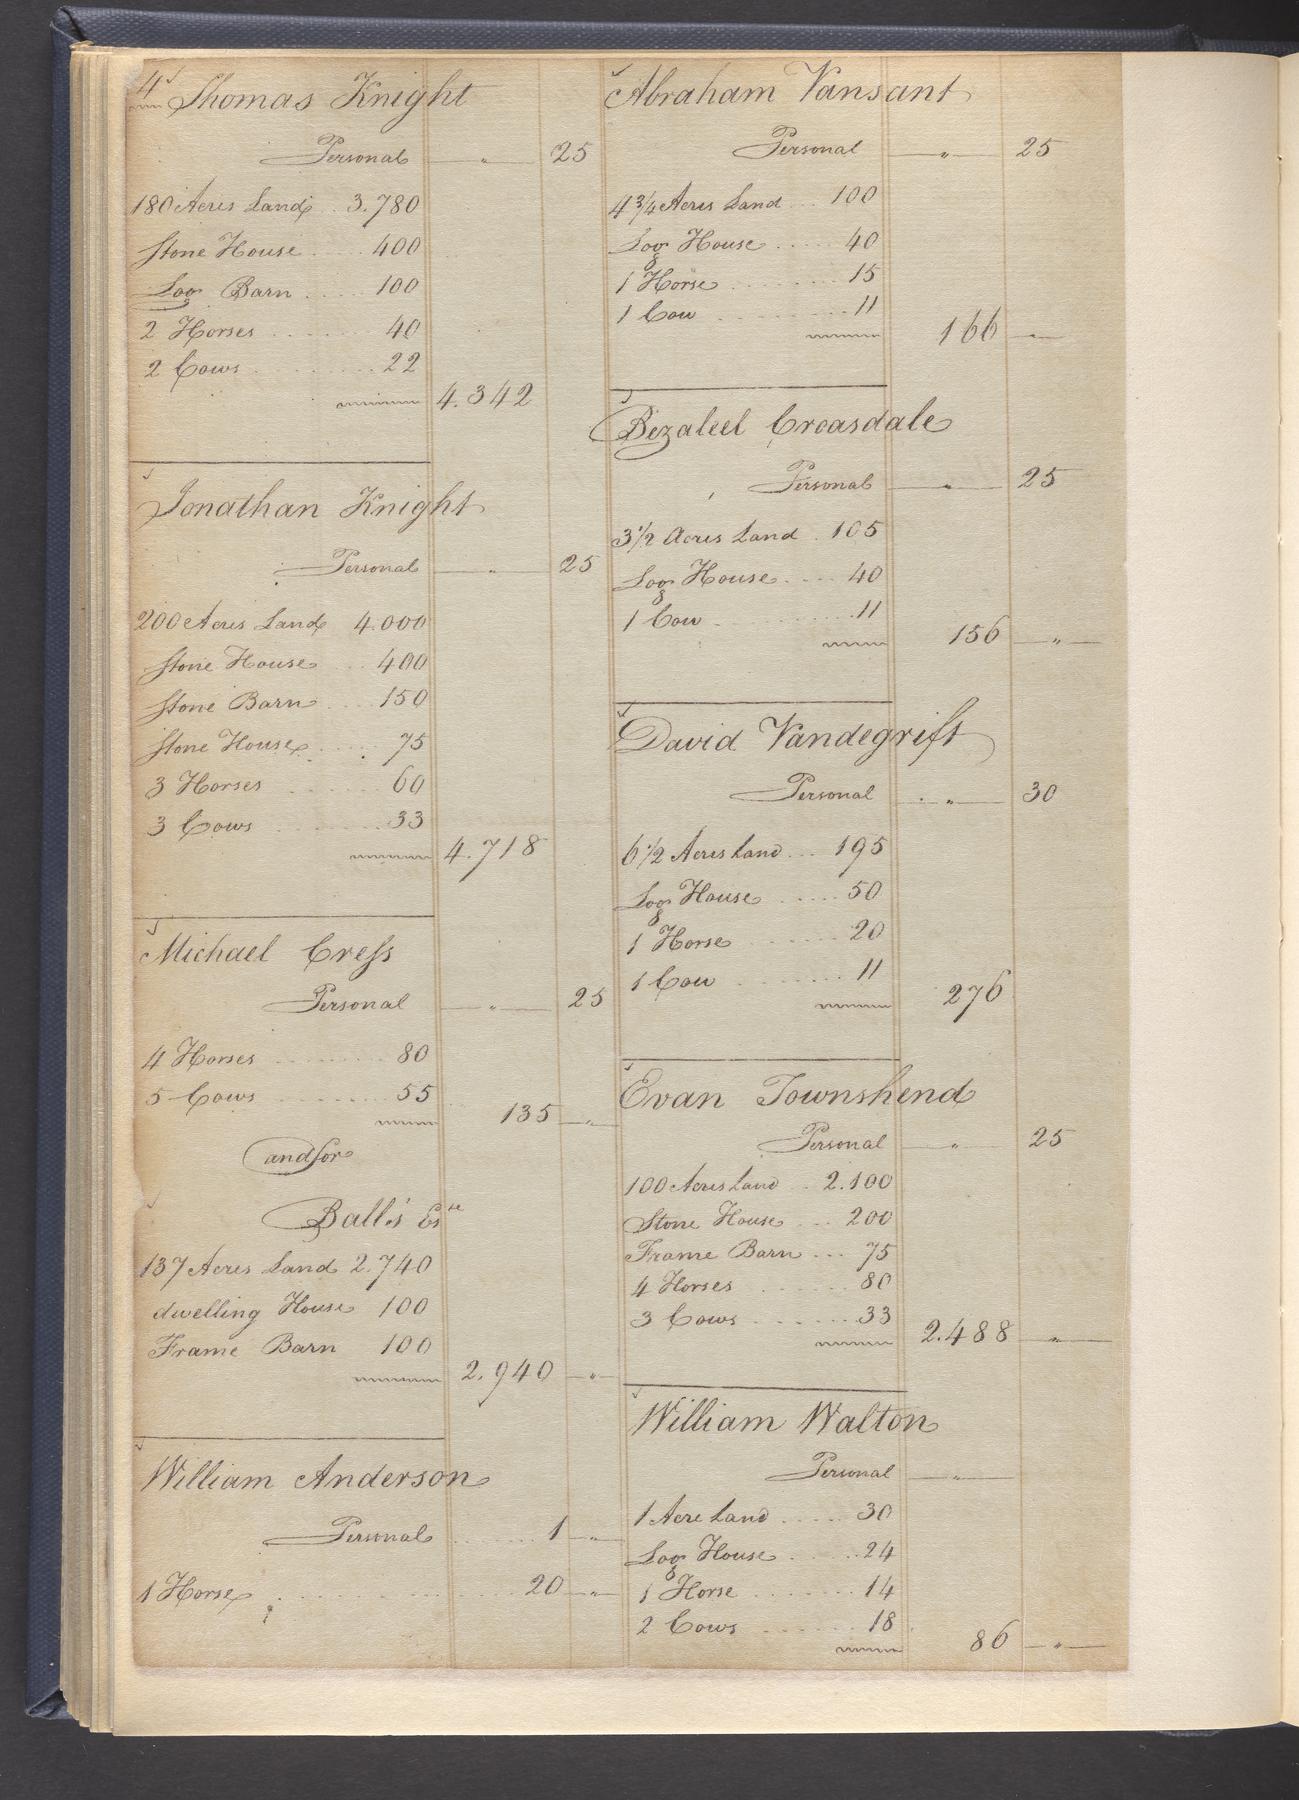 4 Thomas Knight
Personal — " — 25
180 Acres Land .. 3.780
Stone House ..... 400
Log Barn ..... 100
2 Horses ........ 40
2 Cows ......... 22
4.342
Jonathan Knight
Personal — " — 25
200 Acres Land 4.000
Stone House ... 400
Stone Barn .... 150
Stone House ..... 75
3 Horses ...... 60
3 Cows ........ 33
4.718
Michael Cress
Personal — " — 25
4 Horses ........ 80
5 Cows ......... 55
135 — " —
and for
Ball's Este
137 Acres Land 2.740
dwelling House 100
Frame Barn 100
2.940 — " —
William Anderson
Personal ....... 1 — " —
1 Horse ............ 20 — " —
Abraham Vansant
Personal — " — 25
4 3/4 Acres Land ... 100
Log House ..... 40
1 Horse ......... 15
1 Cow .......... 11
166 —
Bezaleel Croasdale
Personal — " — 25
3 1/2 Acres Land . 105
Log House .... 40
1 Cow .......... 11
156 — " —
David Vandegrift
Personal . " — 30
6 1/2 Acres Land ... 195
Log House ..... 50
1 Horse ....... 20
1 Cow ........ 11
276
Evan Townshend
Personal — " — 25
100 Acres Land .. 2.100
Stone House ... 200
Frame Barn ... 75
4 Horses ....... 80
3 Cows ....... 33
2.488 — " —
William Walton
Personal — " —
1 Acre Land ..... 30
Log House ..... 24
1 Horse ....... 14
2 Cows ....... 18
86 — " —